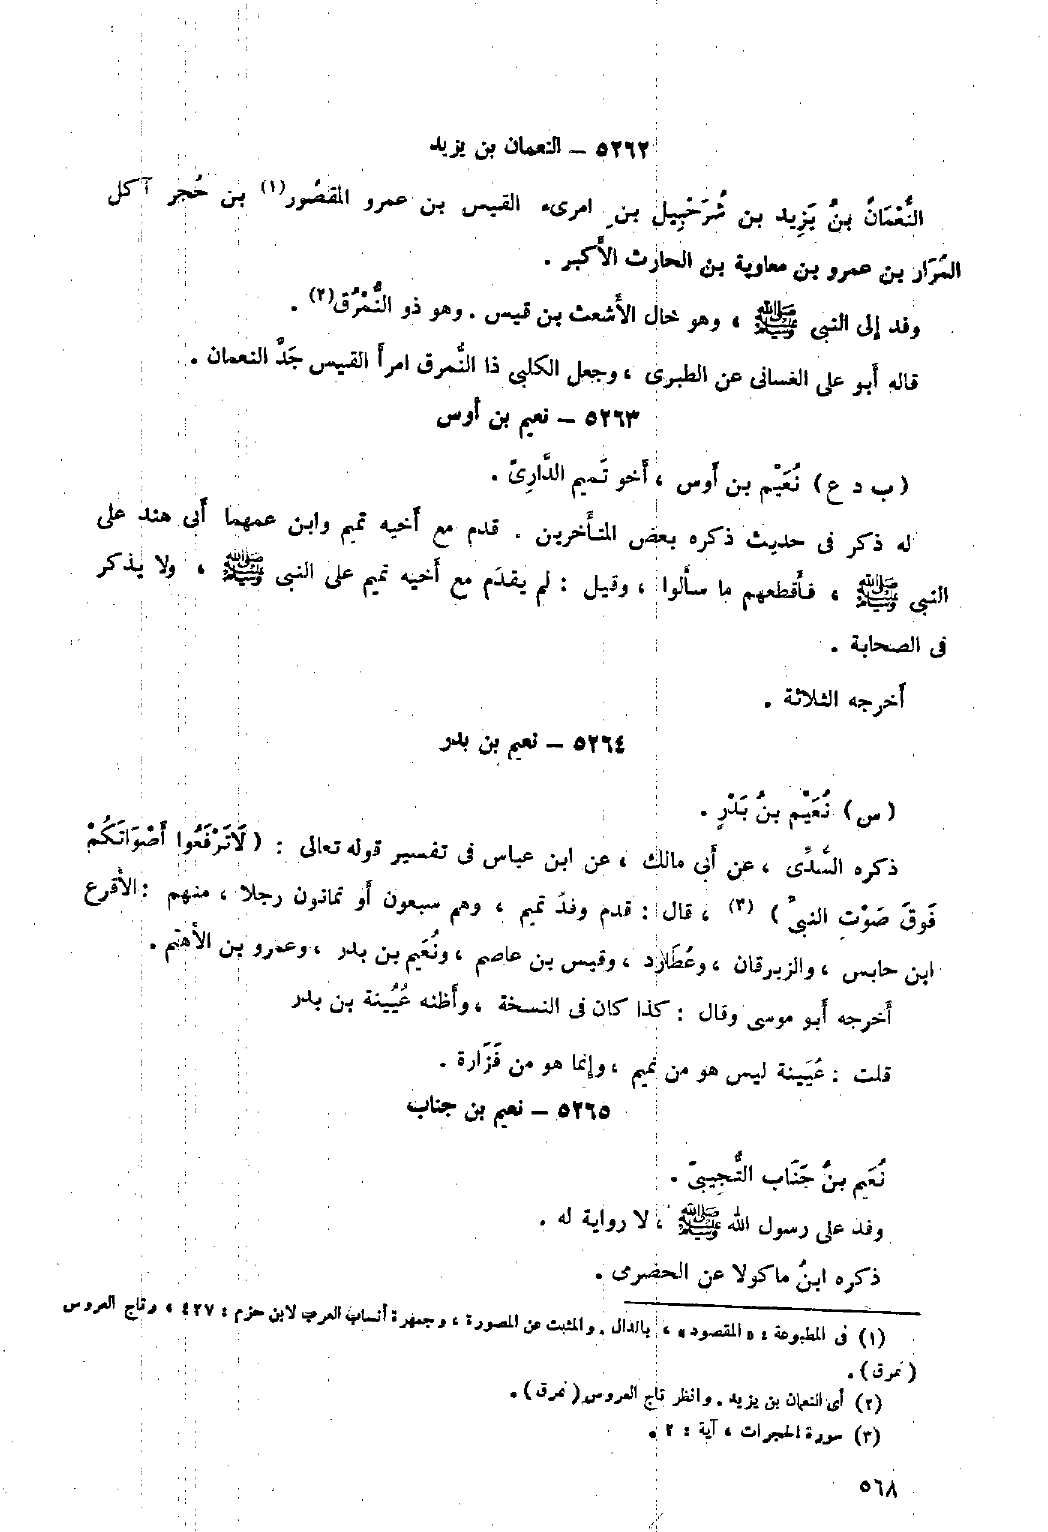 ٥٢٦٢ – النعمان بن يزيد
النُّعْمَانُ بنُ يَزِيد بن شُرَحْبِيل بنِ امرىء القيس بن عمرو المقصُور(١) بن حُجر آكل
المُرَار بن عمرو بن معاوية بن الحارث الأَكبر .
وفد إلى النبى ﷺ ، وهو خال الأَشعث بن قيس . وهو ذو النُّمْرُق(٢) .
قاله أَبو على الغسانى عن الطبرى ، وجعل الكلبى ذا النُّمرق امرأَ القيس جَدَّ النعمان .
٥٢٦٣ – نعيم بن أوس
( ب د ع ) نُعَيْم بن أَوس ، أَخو تَميم الدَّارِىّ .
له ذكر فى حديث ذكره بعض المتأَخرين . قدم مع أَخيه تميم وابن عمهما أَبى هند على
النبى ﷺ ، فأَقطعهم ما سأَلوا ، وقيل : لم يقدَم مع أَخيه تميم على النبى ﷺ ، ولا يذكر
فى الصحابة .
أَخرجه الثلاثة .
٥٢٦٤ – نعيم بن بدر
( س ) نُعَيْم بنُ بَدْرٍ .
ذكره السُّدِّى ، عن أَبى مالك ، عن ابن عباس فى تفسير قوله تعالى : ( لَاتَرْفَعُوا أَصْوَاتَكُمْ
فَوقَ صَوْتِ النبىِّ ) (٣) ، قال : قدم وفدُ تميم ، وهم سبعون أَو ثمانون رجلا ، منهم : الأَقرع
ابن حابس ، والزبرقان ، وعُطَارِد ، وقيس بن عاصم ، ونُعَيم بن بدر ، وعمرو بن الأَهتم .
أَخرجه أَبو موسى وقال : كذا كان فى النسخة ، وأَظنه عُيَيْنة بن بدر
قلت : عُيَيينة ليس هو من تميم ، وإنما هو من فَزَارة .
٥٢٦٥ – نعيم بن جناب
نُعَيم بنُ جَنَاب التُّجِيبىّ .
وفد على رسول الله ﷺ ، لا رواية له .
ذكره ابنُ ماكولا عن الحضرمى .
(١) فى المطبوعة : « المقصود » ، بالدال . والمثبت عن المصورة ، وجمهرة أنساب العرب لابن حزم : ٤٢٧ ، وتاج العروس
( نمرق ) .
(٢) أى النعمان بن يزيد . وانظر تاج العروس ( نمرق ) .
(٣) سورة الحجرات ، آية : ٢ .
٥٦٨